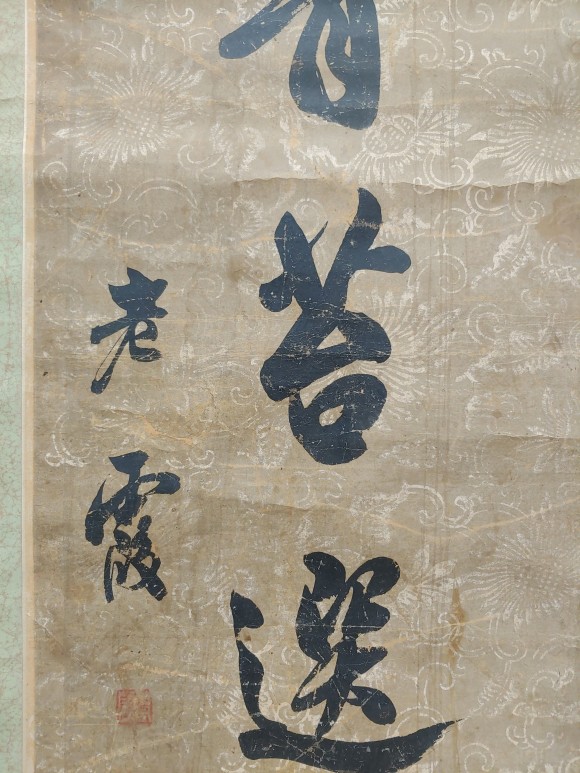 苔選
老霞